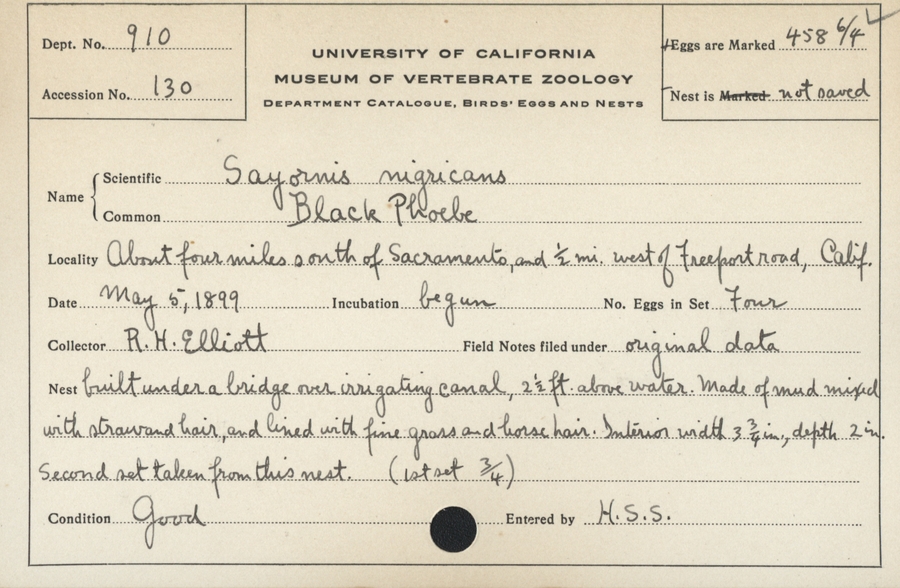 Dept. No. 910
Accession No. 130
UNIVERSITY OF CALIFORNIA
MUSEUM OF VERTEBRATE ZOOLOGY
DEPARTMENT CATALOGUE, BIRDS' EGGS AND NESTS
Eggs are Marked 458 6/4
Nest is Marked not saved
Name
Scientific Sayornis nigricans
Common Black Phoebe
Locality About four miles south of Sacramento, and ½ mi. west of Freeport road, Calif.
Date May 5, 1899 Incubation begun No. Eggs in Set Four
Collector R. H. Elliott Field Notes filed under original data
Nest built under a bridge over irrigating canal, 2½ ft. above water. Made of mud mixed
with straw and hair, and lined with fine grass and horse hair. Interior width 3 ¾ in., depth 2 in.
Second set taken from this nest. (1st set 3/4)
Condition Good Entered by H.S.S.